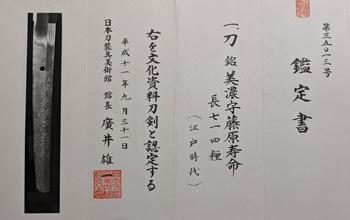 第三五〇一三号
鑑定書
一、刀 銘 美濃守藤原寿命
長 七一・四糎
(江戸時代)
右を文化資料刀剣と認定する
平成十一年九月三十一日
日本刀装具美術館
館長 廣井雄一